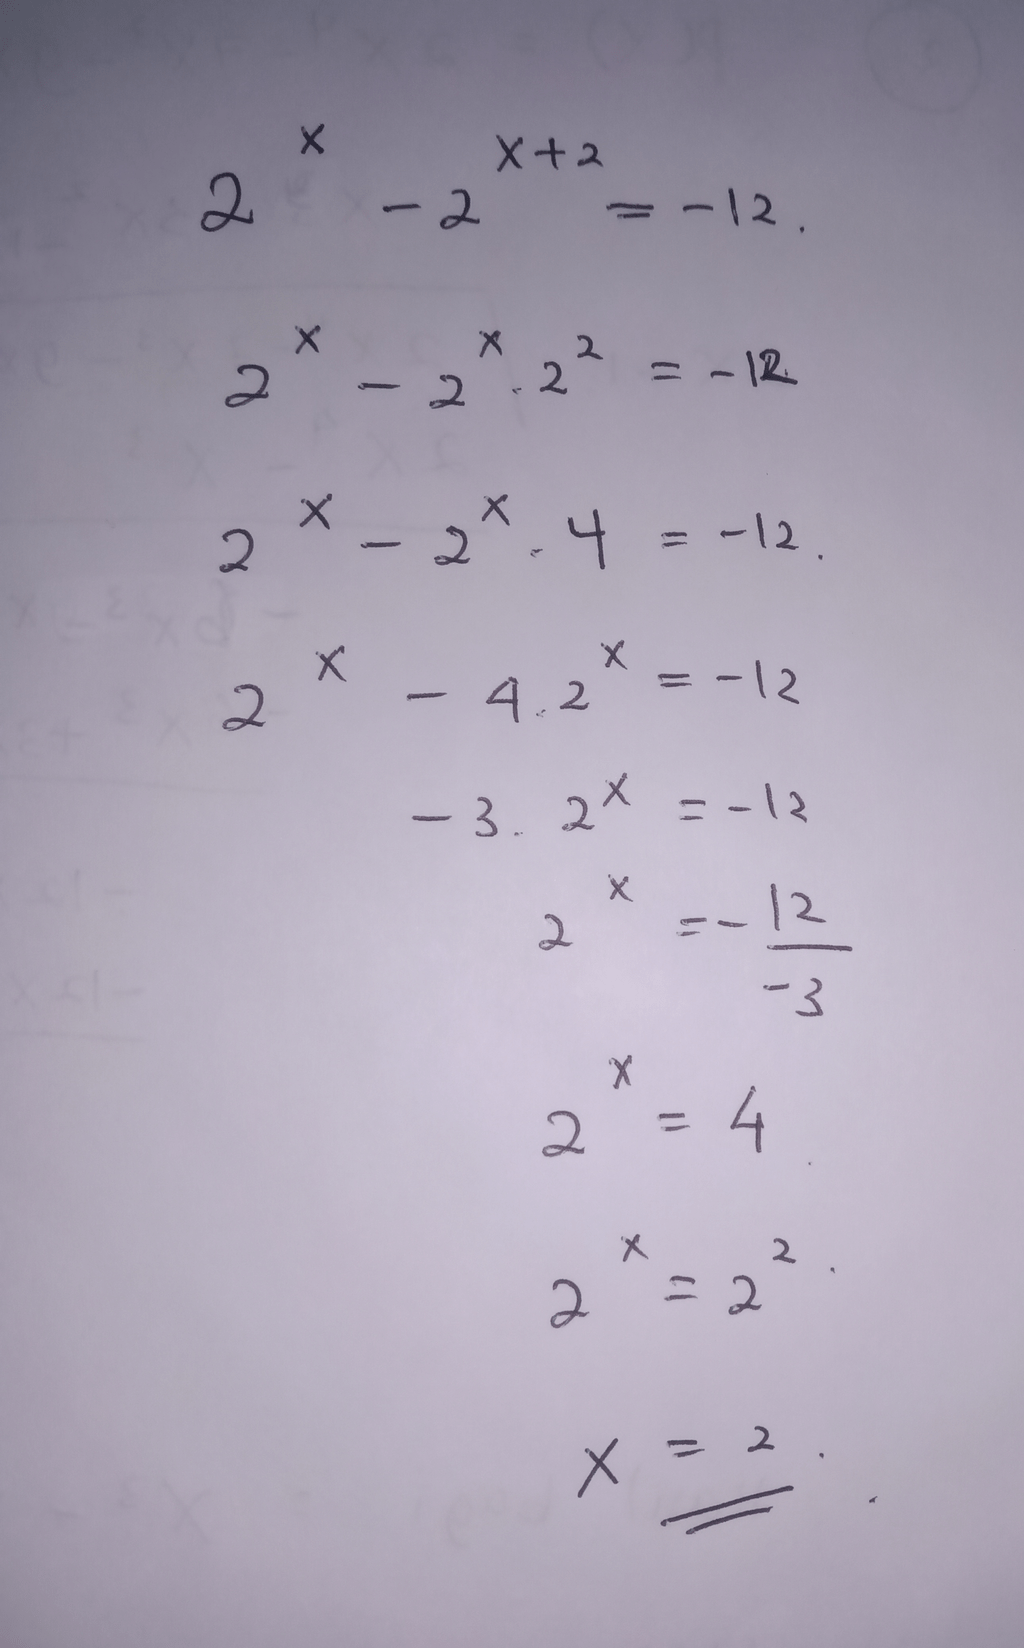 2^x - 2^{x+2} = -12.
2^x - 2^x . 2^2 = -12.
2^x - 2^x . 4 = -12.
2^x - 4 . 2^x = -12
-3 . 2^x = -12
2^x = -12/-3
2^x = 4
2^x = 2^2.
x = 2.